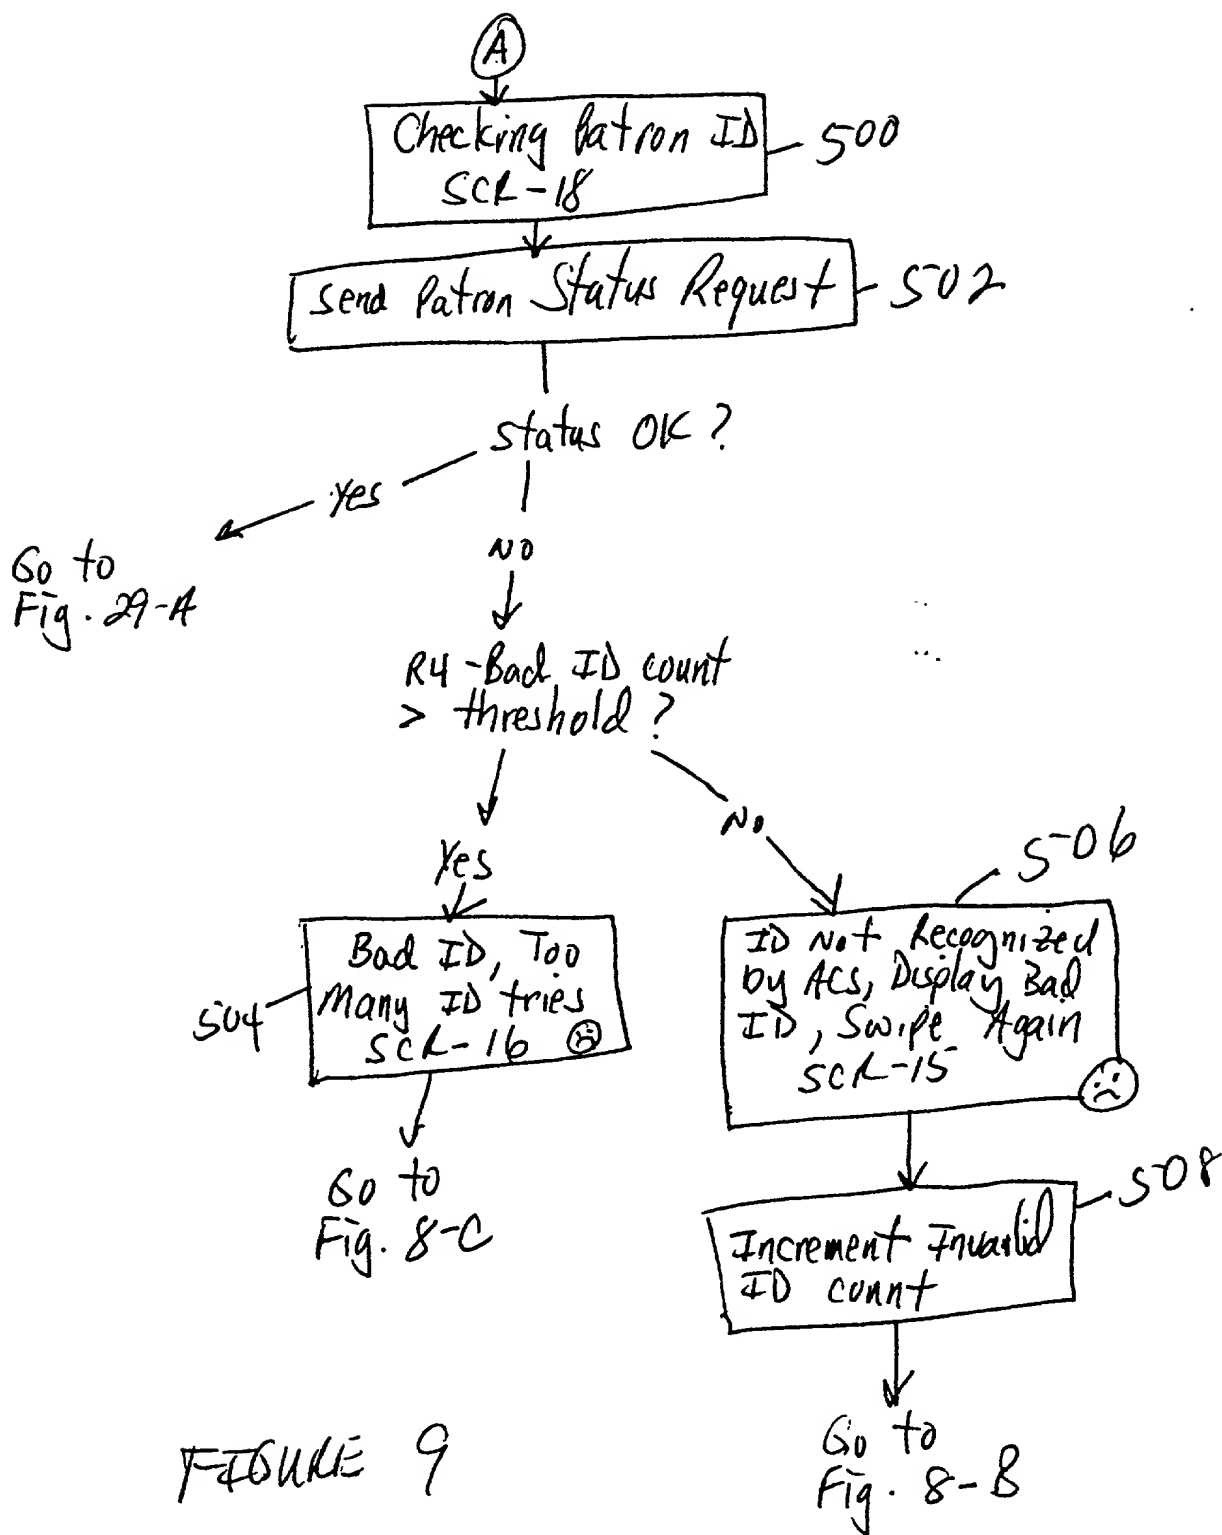 A
Checking Patron ID
SCR-18
500
Send Patron Status Request
502
Status OK?
Yes
Go to
Fig. 29-A
NO
R4-Bad ID count
> threshold?
Yes
No
506
Bad ID, Too
Many ID tries
SCR-16
504
ID Not Recognized
by ACS, Display Bad
ID, Swipe Again
SCR-15
Go to
Fig. 8-C
508
Increment Invalid
ID count
Go to
Fig. 8-B
FIGURE 9